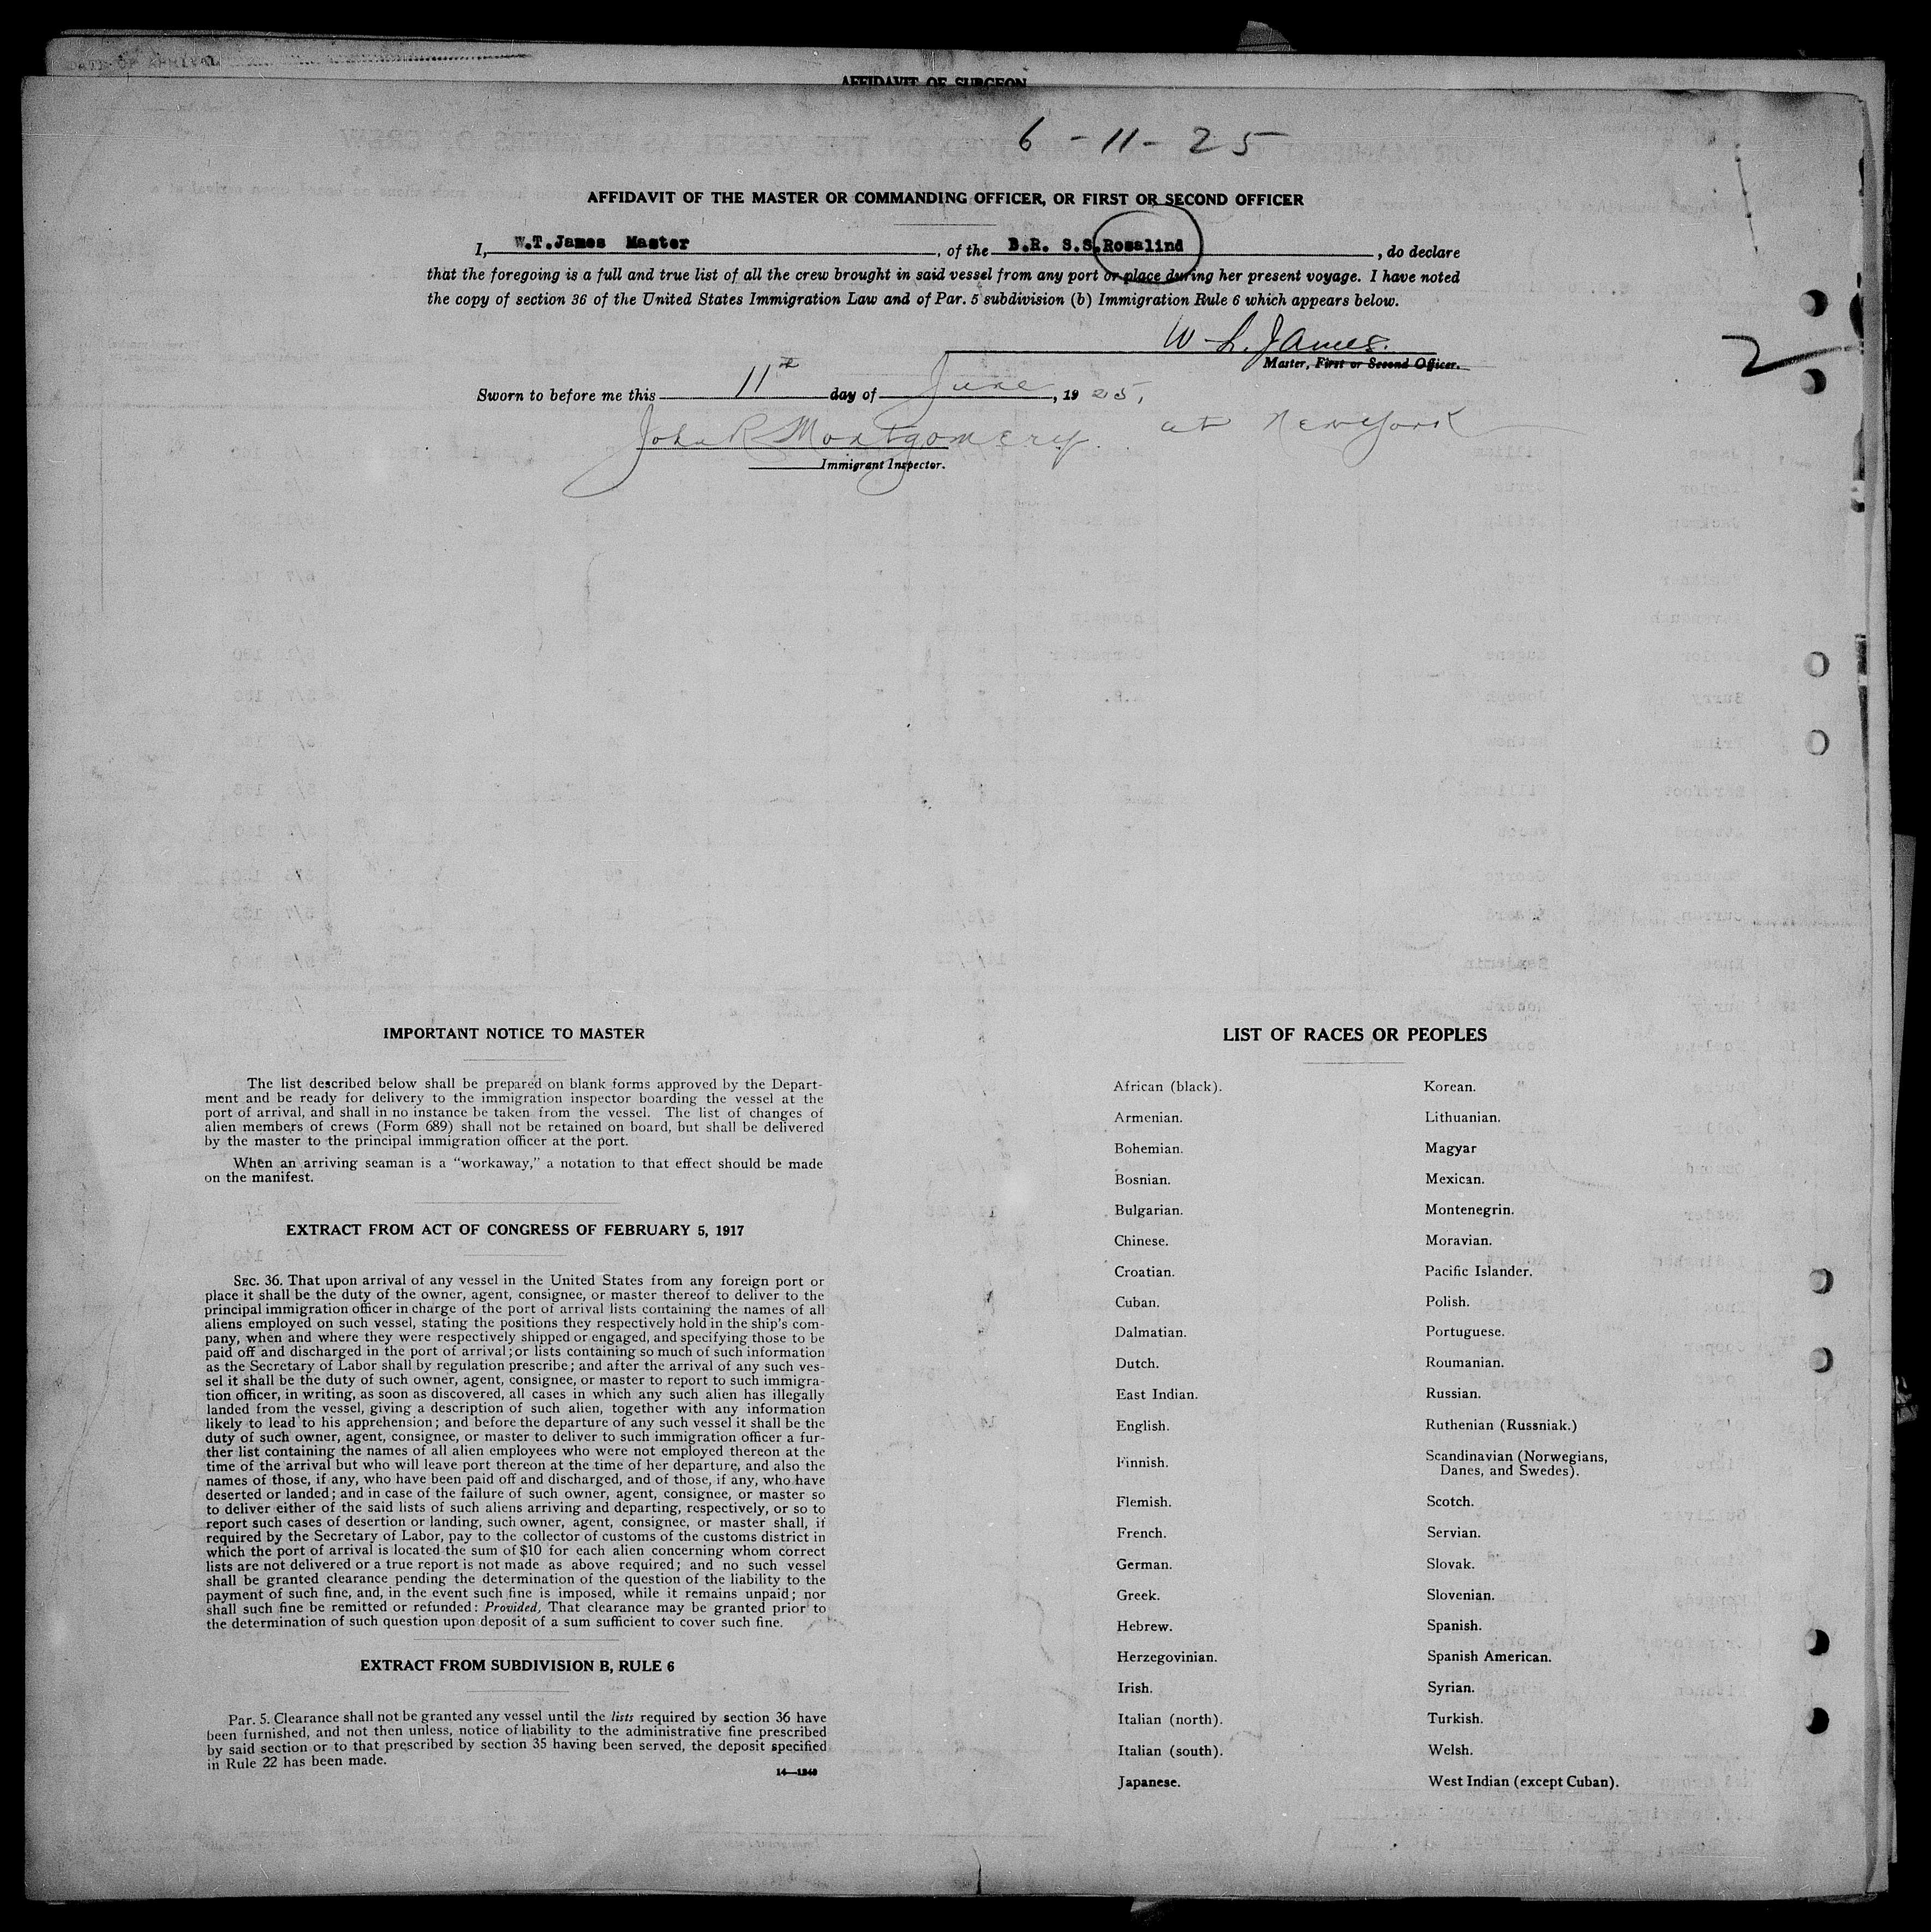 DATE OF ARRIVAL
AFFIDAVIT OF SURGEON
6 - 11 - 25
AFFIDAVIT OF THE MASTER OR COMMANDING OFFICER, OR FIRST OR SECOND OFFICER
I, W.T.James Master, of the B.R. S.S.Rosalind, do declare
that the foregoing is a full and true list of all the crew brought in said vessel from any port or place during her present voyage. I have noted
the copy of section 36 of the United States Immigration Law and of Par. 5 subdivision (b) Immigration Rule 6 which appears below.
James.
Master, First or Second Officer.
2
Sworn to before me this 11th day of June, 1925,
John R Montgomery. at New York
Immigrant Inspector.
IMPORTANT NOTICE TO MASTER
The list described below shall be prepared on blank forms approved by the Depart-
ment and be ready for delivery to the immigration inspector boarding the vessel at the
port of arrival, and shall in no instance be taken from the vessel. The list of changes of
alien members of crews (Form 689) shall not be retained on board, but shall be delivered
by the master to the principal immigration officer at the port.
When an arriving seaman is a "workaway," a notation to that effect should be made
on the manifest.
EXTRACT FROM ACT OF CONGRESS OF FEBRUARY 5, 1917
SEC. 36. That upon arrival of any vessel in the United States from any foreign port or
place it shall be the duty of the owner, agent, consignee, or master thereof to deliver to the
principal immigration officer in charge of the port of arrival lists containing the names of all
aliens employed on such vessel, stating the positions they respectively hold in the ship's com-
pany, when and where they were respectively shipped or engaged, and specifying those to be
paid off and discharged in the port of arrival; or lists containing so much of such information
as the Secretary of Labor shall by regulation prescribe; and after the arrival of any such ves-
sel it shall be the duty of such owner, agent, consignee, or master to report to such immigra-
tion officer, in writing, as soon as discovered, all cases in which any such alien has illegally
landed from the vessel, giving a description of such alien, together with any information
likely to lead to his apprehension; and before the departure of any such vessel it shall be the
duty of such owner, agent, consignee, or master to deliver to such immigration officer a fur-
ther list containing the names of all alien employees who were not employed thereon at the
time of the arrival but who will leave port thereon at the time of her departure, and also the
names of those, if any, who have been paid off and discharged, and of those, if any, who have
deserted or landed; and in case of the failure of such owner, agent, consignee, or master so
to deliver either of the said lists of such aliens arriving and departing, respectively, or so to
report such cases of desertion or landing, such owner, agent, consignee, or master shall, if
required by the Secretary of Labor, pay to the collector of customs of the customs district in
which the port of arrival is located the sum of $10 for each alien concerning whom correct
lists are not delivered or a true report is not made as above required; and no such vessel
shall be granted clearance pending the determination of the question of the liability to the
payment of such fine, and, in the event such fine is imposed, while it remains unpaid; nor
shall such fine be remitted or refunded: Provided, That clearance may be granted prior to
the determination of such question upon deposit of a sum sufficient to cover such fine.
EXTRACT FROM SUBDIVISION B, RULE 6
Par. 5. Clearance shall not be granted any vessel until the lists required by section 36 have
been furnished, and not then unless, notice of liability to the administrative fine prescribed
by said section or to that prescribed by section 35 having been served, the deposit specified
in Rule 22 has been made.
14—1240
LIST OF RACES OR PEOPLES
African (black).
Armenian.
Bohemian.
Bosnian.
Bulgarian.
Chinese.
Croatian.
Cuban.
Dalmatian.
Dutch.
East Indian.
English.
Finnish.
Flemish.
French.
German.
Greek.
Hebrew.
Herzegovinian.
Irish.
Italian (north).
Italian (south).
Japanese.
Korean.
Lithuanian.
Magyar
Mexican.
Montenegrin.
Moravian.
Pacific Islander.
Polish.
Portuguese.
Roumanian.
Russian.
Ruthenian (Russniak.)
Scandinavian (Norwegians,
Danes, and Swedes).
Scotch.
Servian.
Slovak.
Slovenian.
Spanish.
Spanish American.
Syrian.
Turkish.
Welsh.
West Indian (except Cuban).